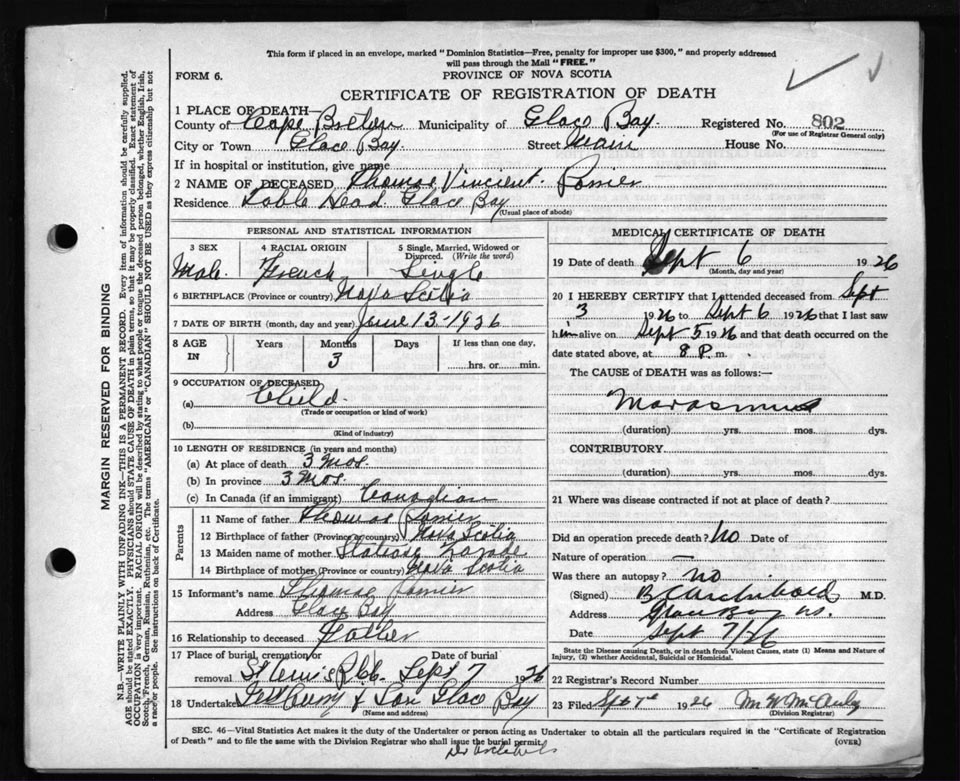 This form if placed in an envelope, marked "Dominion Statistics—Free, penalty for improper use $300," and properly addressed
will pass through the Mail "FREE."
FORM 6.
PROVINCE OF NOVA SCOTIA
CERTIFICATE OF REGISTRATION OF DEATH
1 PLACE OF DEATH—
County of Cape Breton Municipality of Glace Bay. Registered No. 802
(For use of Registrar General only)
City or Town Glace Bay. Street Main House No.
If in hospital or institution, give name
2 NAME OF DECEASED Thomas Vincient.
Residence Table Head Glace Bay
(Usual place of abode)
PERSONAL AND STATISTICAL INFORMATION
3 SEX 4 RACIAL ORIGIN 5 Single, Married, Widowed or
Divorced. (Write the word)
Male. French Single
6 BIRTHPLACE (Province or country) Nova Scotia
7 DATE OF BIRTH (month, day and year) June 13-1926
8 AGE IN Years Months Days If less than one day,
3 hrs. or min.
9 OCCUPATION OF DECEASED
(a) Child.
(Trade or occupation or kind of work)
(b)
(Kind of industry)
10 LENGTH OF RESIDENCE (in years and months)
(a) At place of death 3 mos.
(b) In province 3 mos.
(c) In Canada (if an immigrant) Canadian
Parents
11 Name of father Thomas
12 Birthplace of father (Province or country) Nova Scotia
13 Maiden name of mother
14 Birthplace of mother (Province or country) Nova Scotia
15 Informant's name Thomas
Address Glace Bay
16 Relationship to deceased Father
17 Place of burial, cremation or removal Date of burial
Sept 7 1926
18 Undertaker & Son Glace Bay
(Name and address)
MEDICAL CERTIFICATE OF DEATH
19 Date of death Sept 6 1926
(Month, day and year)
20 I HEREBY CERTIFY that I attended deceased from Sept
3 1926 to Sept 6 1926 that I last saw
him alive on Sept 5 1926 and that death occurred on
date stated above, at 8 P. m.
The CAUSE of DEATH was as follows:—
Marasmus
(duration) yrs. mos. dys.
CONTRIBUTORY.
(duration) yrs. mos. dys.
21 Where was disease contracted if not at place of death?
Did an operation precede death? No Date of
Nature of operation —
Was there an autopsy? no
(Signed) Archibald M.D.
Address Glace Bay NS.
Date Sept 7/26
State the Disease causing Death, or in death from Violent Causes, state (1) Means and Nature of
Injury, (2) whether Accidental, Suicidal or Homicidal.
22 Registrar's Record Number
23 Filed Sept 7th 1926
(Division Registrar)
SEC. 46—Vital Statistics Act makes it the duty of the Undertaker or person acting as Undertaker to obtain all the particulars required in the "Certificate of Registration
of Death" and to file the same with the Division Registrar who shall issue the burial permit.
(OVER)
MARGIN RESERVED FOR BINDING
N.B.—WRITE PLAINLY WITH UNFADING INK—THIS IS A PERMANENT RECORD. Every item of information should be carefully supplied.
AGE should be stated EXACTLY. PHYSICIANS should STATE CAUSE OF DEATH in plain terms, so that it may be properly classified. Exact statement of
OCCUPATION is very important. RACIAL ORIGIN will be described by stating to what people or tongue the deceased person belonged, whether English, Irish,
Scotch, French, German, Russian, Ruthenian, etc. The terms "AMERICAN" or "CANADIAN" SHOULD NOT BE USED as they express citizenship but not
a race or people. See instructions on back of Certificate.